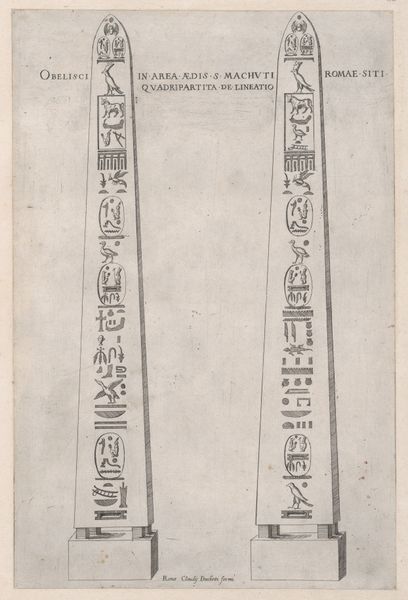 OBELISCI IN·AREA·ÆDIS·S·MACHVTI ROMAE·SITI·
QVADRIPARTITA·DE·LINEATIO
Romæ Claudij Ducheti formis